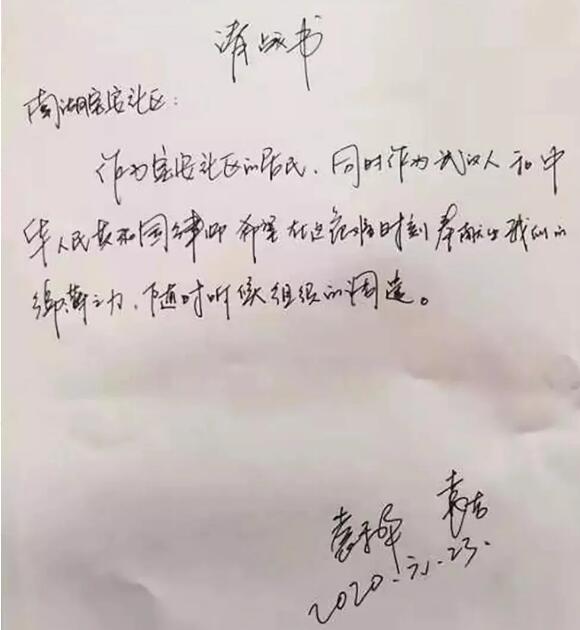 请战书
南湖宝安社区：
作为宝安社区的居民、同时作为武汉人和中
华人民共和国律师 希望在这危难时刻奉献出我们的
绵薄之力、随时听候组织的调遣。
袁
2020.
23.